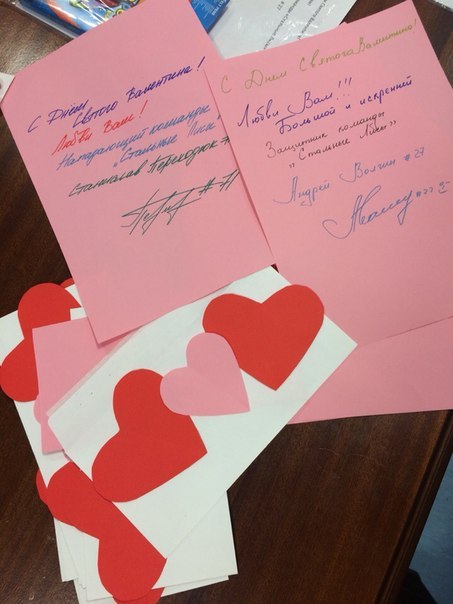 С Днём
Святого Валентина!
Любви Вам!
Нападающий команды
"Стальные Лисы"
Станислав Переходюк
#71
С Днем Святого Валентина!
Любви Вам!!!
Большой и искренней
Защитник команды
"Стальные Лисы"
Андрей Волгин #27
#27